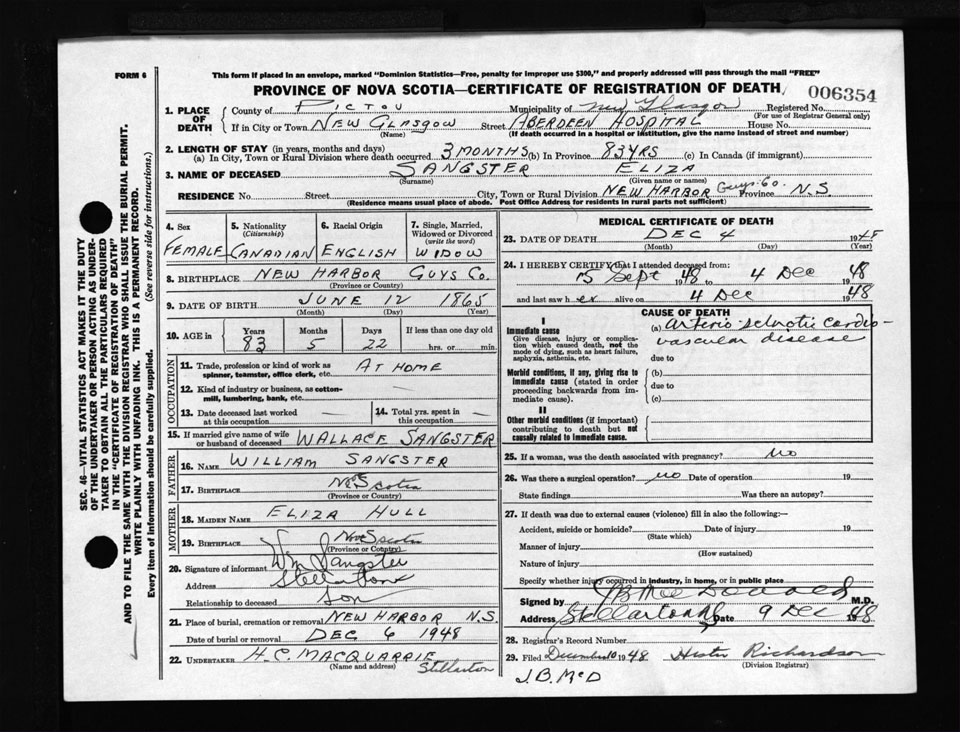 FORM 6
This form if placed in an envelope, marked "Dominion Statistics—Free, penalty for improper use $300," and properly addressed will pass through the mail "FREE"
PROVINCE OF NOVA SCOTIA—CERTIFICATE OF REGISTRATION OF DEATH 006354
1. PLACE OF DEATH
County of PICTOU Municipality of New Glasgow Registered No.
(For use of Registrar General only)
If in City or Town NEW GLASGOW Street ABERDEEN HOSPITAL House No.
(Name) (If death occurred in a hospital or institution, give the name instead of street and number)
2. LENGTH OF STAY (in years, months and days)
(a) In City, Town or Rural Division where death occurred 3 MONTHS (b) In Province 83 YRS (c) In Canada (if immigrant)
3. NAME OF DECEASED SANGSTER ELIZA
(Surname) (Given name or names)
RESIDENCE No. Street City, Town or Rural Division NEW HARBOR Guys. Co. Province N.S.
(Residence means usual place of abode. Post Office Address for residents in rural parts not sufficient)
4. Sex FEMALE
5. Nationality (Citizenship) CANADIAN
6. Racial Origin ENGLISH
7. Single, Married, Widowed or Divorced (write the word) WIDOW
8. BIRTHPLACE NEW HARBOR GUYS CO.
(Province or Country)
9. DATE OF BIRTH JUNE 12 1865
(Month) (Day) (Year)
10. AGE in Years 83 Months 5 Days 22 If less than one day old hrs. or min.
OCCUPATION
11. Trade, profession or kind of work as spinner, teamster, office clerk, etc. AT HOME
12. Kind of industry or business, as cotton-mill, lumbering, bank, etc. —
13. Date deceased last worked at this occupation — 14. Total yrs. spent in this occupation —
15. If married give name of wife or husband of deceased WALLACE SANGSTER
FATHER
16. NAME WILLIAM SANGSTER
17. BIRTHPLACE Nova Scotia
(Province or Country)
MOTHER
18. MAIDEN NAME ELIZA HULL
19. BIRTHPLACE Nova Scotia
(Province or Country)
20. Signature of informant Wm Sangster
Address Stellarton
Relationship to deceased Son
21. Place of burial, cremation or removal NEW HARBOR N.S.
Date of burial or removal DEC 6 1948
22. UNDERTAKER H.C. MACQUARRIE Stellarton
(Name and address)
MEDICAL CERTIFICATE OF DEATH
23. DATE OF DEATH DEC 4 1948
(Month) (Day) (Year)
24. I HEREBY CERTIFY that I attended deceased from:
5 Sept 1948 to 4 Dec 1948
and last saw her alive on 4 Dec 1948
CAUSE OF DEATH
I
Immediate cause
Give disease, injury or complication which caused death, not the mode of dying, such as heart failure, asphyxia, asthenia, etc.
(a) arterio-sclerotic cardio-
vascular disease
due to
Morbid conditions, if any, giving rise to immediate cause (stated in order proceeding backwards from immediate cause).
(b)
due to
(c)
II
Other morbid conditions (if important) contributing to death but not causally related to immediate cause.
25. If a woman, was the death associated with pregnancy? no
26. Was there a surgical operation? no Date of operation 19
State findings Was there an autopsy?
27. If death was due to external causes (violence) fill in also the following:—
Accident, suicide or homicide? Date of injury 19
(State which)
Manner of injury
(How sustained)
Nature of injury
Specify whether injury occurred in industry, in home, or in public place
Signed by MacDonald M.D.
Address Stellarton NS Date 9 Dec 1948
28. Registrar's Record Number
29. Filed December 10 1948 Hester Richardson
(Division Registrar)
J.B. McD
SEC. 46—VITAL STATISTICS ACT MAKES IT THE DUTY
OF THE UNDERTAKER OR PERSON ACTING AS UNDER-
TAKER TO OBTAIN ALL THE PARTICULARS REQUIRED
IN THE "CERTIFICATE OF REGISTRATION OF DEATH"
AND TO FILE THE SAME WITH THE DIVISION REGISTRAR WHO SHALL ISSUE THE BURIAL PERMIT.
WRITE PLAINLY WITH UNFADING INK. THIS IS A PERMANENT RECORD.
Every item of information should be carefully supplied. (See reverse side for instructions.)